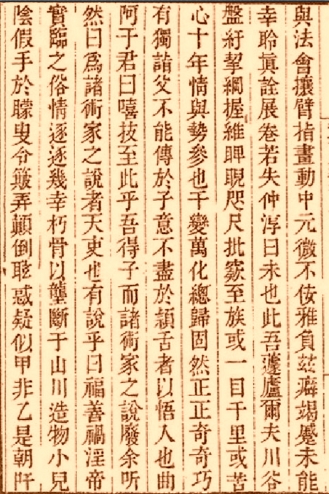 與法會攘臂指畫動中元微不佞雅負茲癖竭蹷未能
幸聆眞詮展卷若失仲淳曰未也此吾蘧廬爾夫川谷
盤紆挈綱握維睥睨咫尺批窽至族或一目千里或苦
心十年情與勢參也千變萬化總歸固然正正奇奇巧
有獨諳父不能傳於子意不盡於頰舌者以悟人也曲
阿于君曰嘻技至此乎吾得子而諸術家之說廢余听
然曰爲諸術家之說者天吏也有說乎曰福善禍淫帝
實臨之俗情逐逐幾幸朽骨以壟斷于山川造物小兒
陰假手於矇叟令簸弄顛倒眩惑疑似甲非乙是朝阡